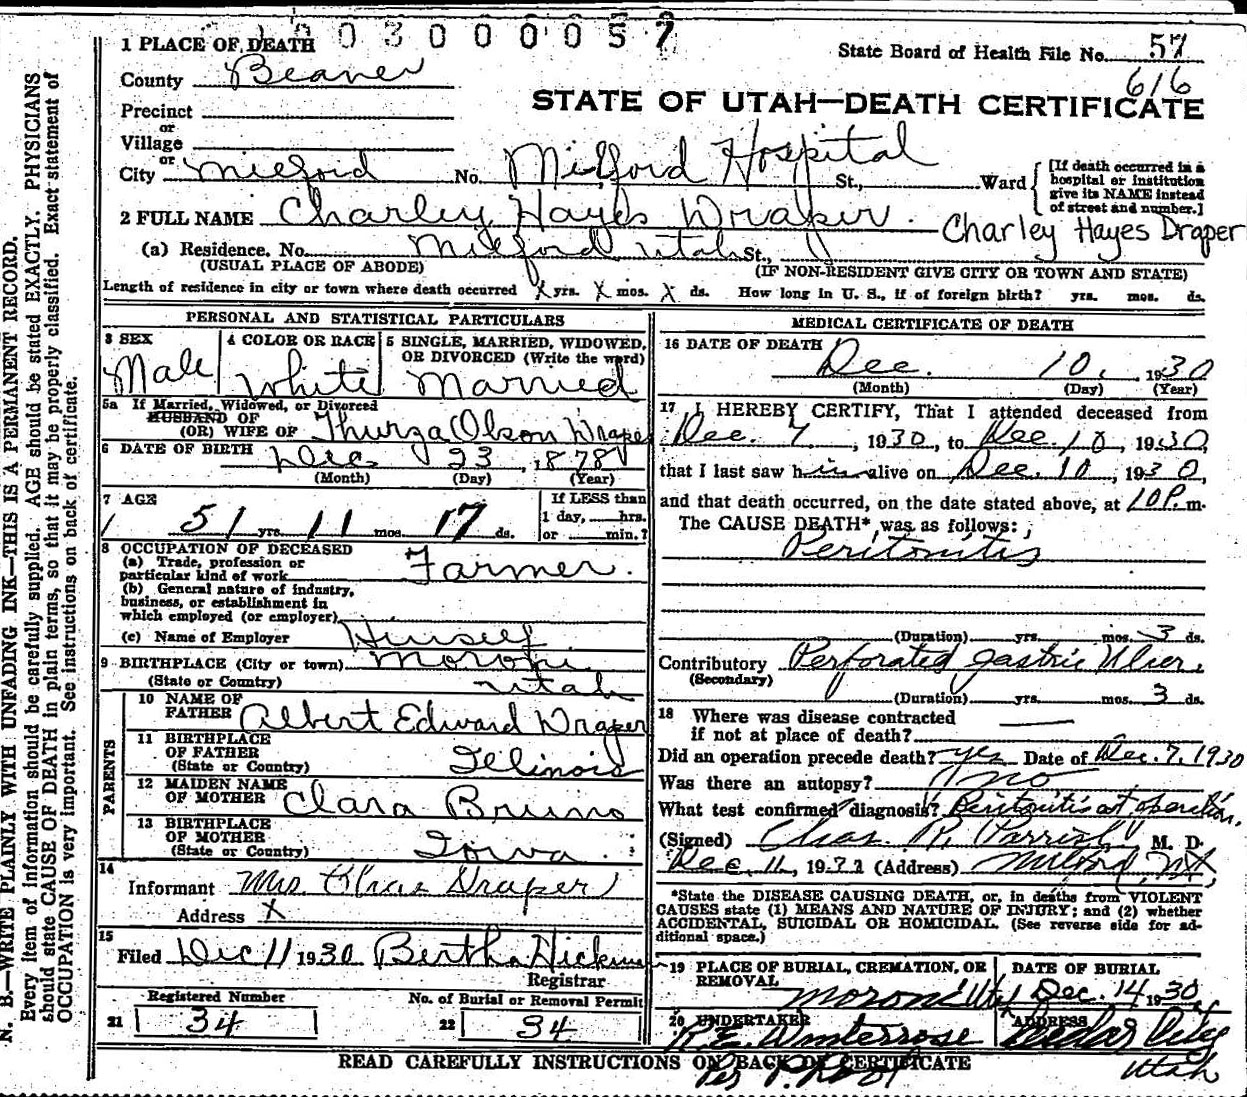 0 3 0 0 0 0 5 7
1 PLACE OF DEATH
State Board of Health File No. 57
County Beaver
616
STATE OF UTAH—DEATH CERTIFICATE
Precinct
or
Village
or
City Milford No. Milford Hospital St., Ward
[If death occurred in a
hospital or institution
give its NAME instead
of street and number.]
2 FULL NAME Charley Hayes Draper
Charley Hayes Draper
(a) Residence, No. Milford Utah St.,
(USUAL PLACE OF ABODE) (IF NON-RESIDENT GIVE CITY OR TOWN AND STATE)
Length of residence in city or town where death occurred X yrs. X mos. X ds. How long in U. S., if of foreign birth? yrs. mos. ds.
PERSONAL AND STATISTICAL PARTICULARS
3 SEX 4 COLOR OR RACE 5 SINGLE, MARRIED, WIDOWED,
OR DIVORCED (Write the word)
Male White Married
5a If Married, Widowed, or Divorced
HUSBAND OF
(OR) WIFE OF Thurza Olson Draper
6 DATE OF BIRTH Dec 23, 1878
(Month) (Day) (Year)
7 AGE
51 yrs. 11 mos. 17 ds.
If LESS than
1 day, hrs.
or min.?
8 OCCUPATION OF DECEASED
(a) Trade, profession or
particular kind of work Farmer.
(b) General nature of industry,
business, or establishment in
which employed (or employer)
(c) Name of Employer Himself
9 BIRTHPLACE (City or town) Moroni
(State or Country) Utah
PARENTS
10 NAME OF
FATHER Albert Edward Draper
11 BIRTHPLACE
OF FATHER
(State or Country) Illinois
12 MAIDEN NAME
OF MOTHER Clara Bruno
13 BIRTHPLACE
OF MOTHER
(State or Country) Iowa.
14
Informant Mrs. Chas Draper
Address X
15
Filed Dec 11 1930 Bertha
Registrar
Registered Number No. of Burial or Removal Permit
21 34 22 34
MEDICAL CERTIFICATE OF DEATH
16 DATE OF DEATH Dec. 10, 1930
(Month) (Day) (Year)
17 I HEREBY CERTIFY, That I attended deceased from
Dec. 7, 1930, to Dec. 10, 1930,
that I last saw him alive on Dec. 10, 1930,
and that death occurred, on the date stated above, at 10 P. m.
The CAUSE DEATH* was as follows:
Peritonitis
(Duration) yrs. mos. 3 ds.
Contributory Perforated gastric Ulcer.
(Secondary)
(Duration) yrs. mos. 3 ds.
18 Where was disease contracted
if not at place of death?
Did an operation precede death? yes Date of Dec. 7, 1930
Was there an autopsy? no
What test confirmed diagnosis? Peritonitis at operation.
(Signed) Chas. R. Parrish M. D.
Dec. 11, 19 (Address) Milford, Ut,
*State the DISEASE CAUSING DEATH, or, in deaths from VIOLENT
CAUSES state (1) MEANS AND NATURE OF INJURY; and (2) whether
ACCIDENTAL, SUICIDAL OR HOMICIDAL. (See reverse side for ad-
ditional space.)
19 PLACE OF BURIAL, CREMATION, OR
REMOVAL
Moroni Utah
DATE OF BURIAL
Dec. 14 1930
20 UNDERTAKER
R. E. Winterrose
ADDRESS
Cedar City
Utah
Per P. Root
READ CAREFULLY INSTRUCTIONS ON BACK OF CERTIFICATE
N. B.—WRITE PLAINLY WITH UNFADING INK—THIS IS A PERMANENT RECORD.
Every item of information should be carefully supplied. AGE should be stated EXACTLY. PHYSICIANS
should state CAUSE OF DEATH in plain terms, so that it may be properly classified. Exact statement of
OCCUPATION is very important. See instructions on back of certificate.